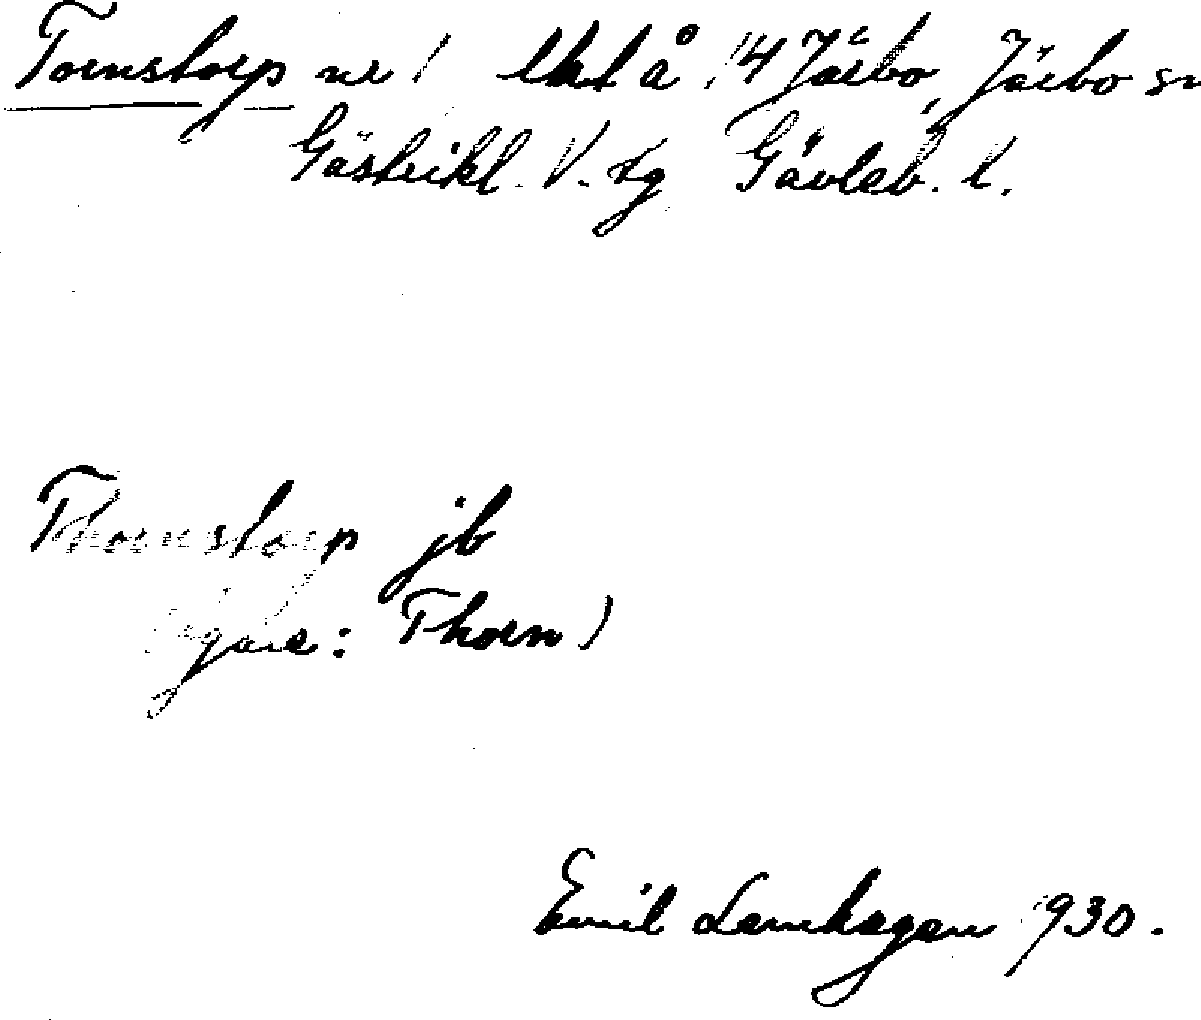 Tornstorp nr 1 lht å 14 Järbo, Järbo sn
Gästrikl. V. tg Gävleb. l.
Thornstorp jb
ägare: Thorn)
Emil Lamhagen 1930.